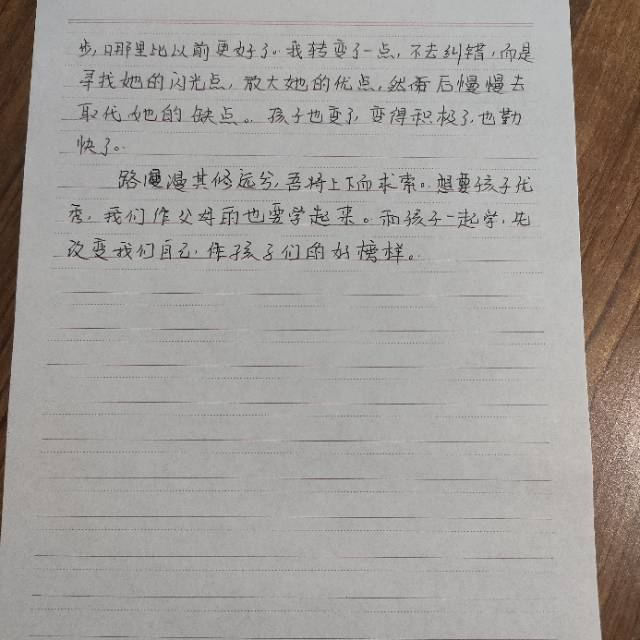 步,哪里比以前更好了。我转变了一点,不去纠错,而是
寻找她的闪光点,放大她的优点,然而后慢慢去
取代她的缺点。孩子也变了,变得积极了,也勤
快了。
路漫漫其修远兮,吾将上下而求索。想要孩子优
秀,我们作父母的也要学起来。和孩子一起学,先
改变我们自己,作孩子们的好榜样。